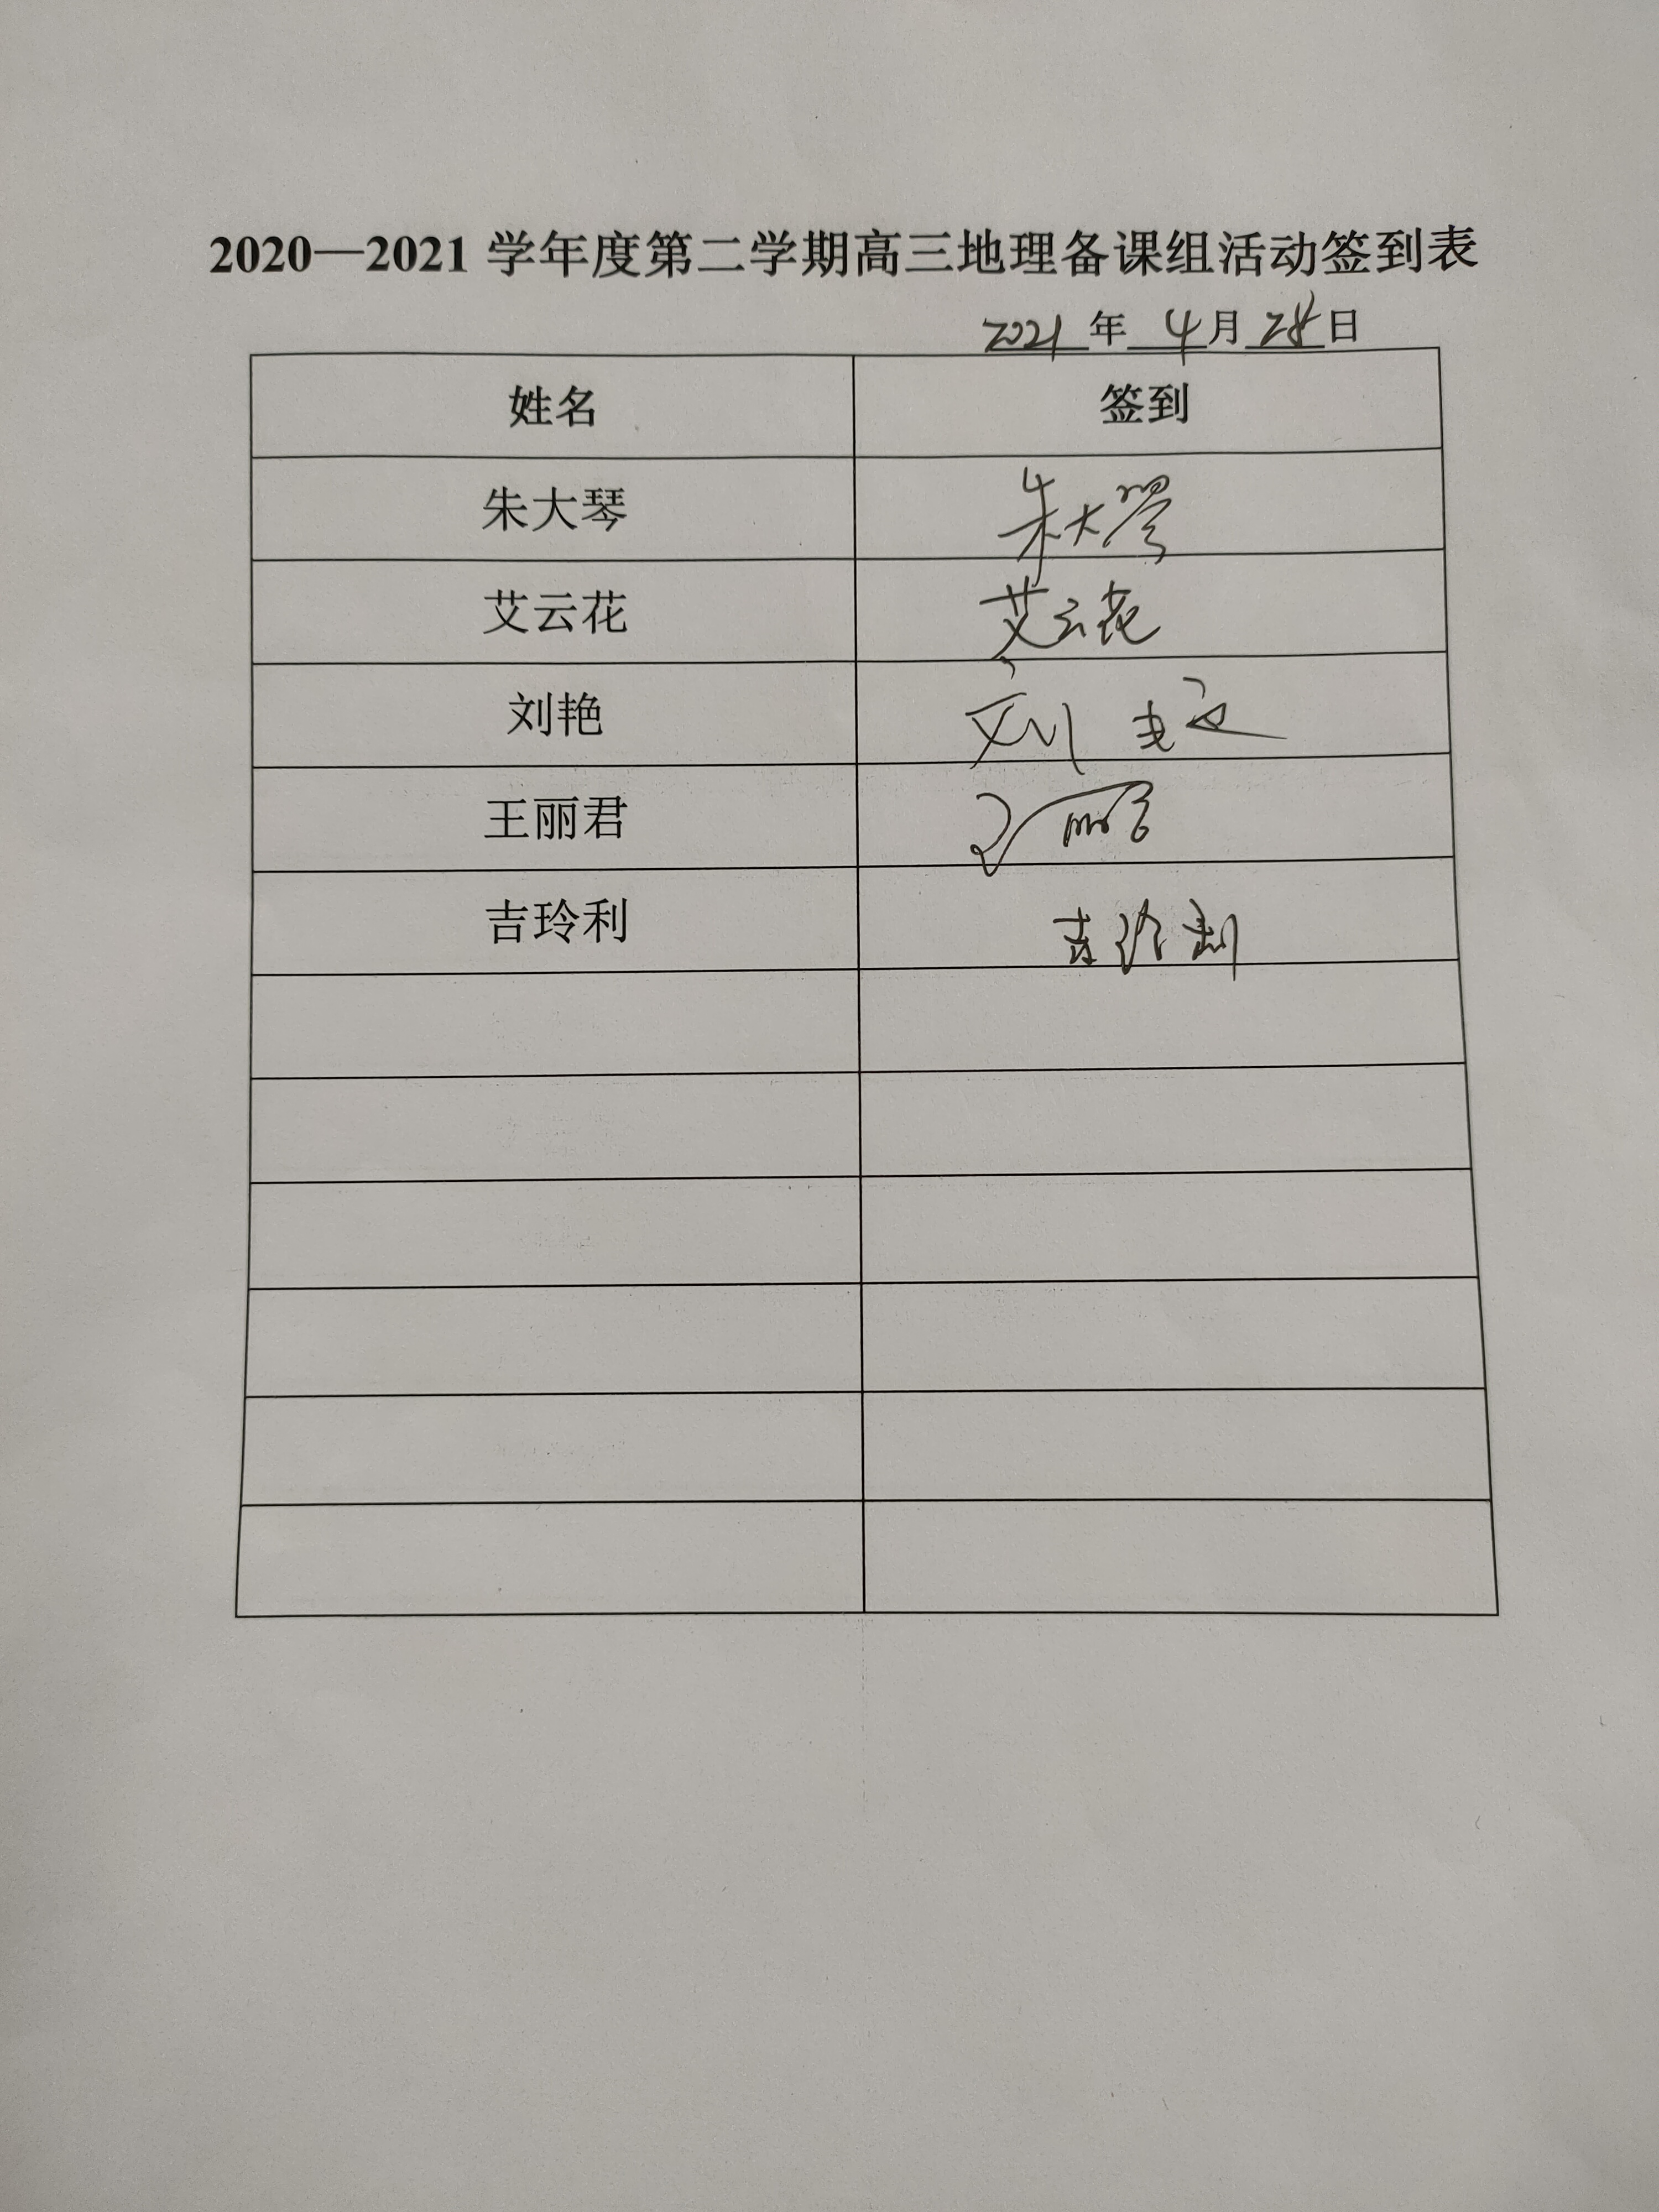 2020—2021 学年度第二学期高三地理备课组活动签到表
2021 年 4 月 28 日
姓名 签到
朱大琴 朱大琴
艾云花 艾云花
刘艳 刘艳
王丽君 王丽君
吉玲利 吉玲利